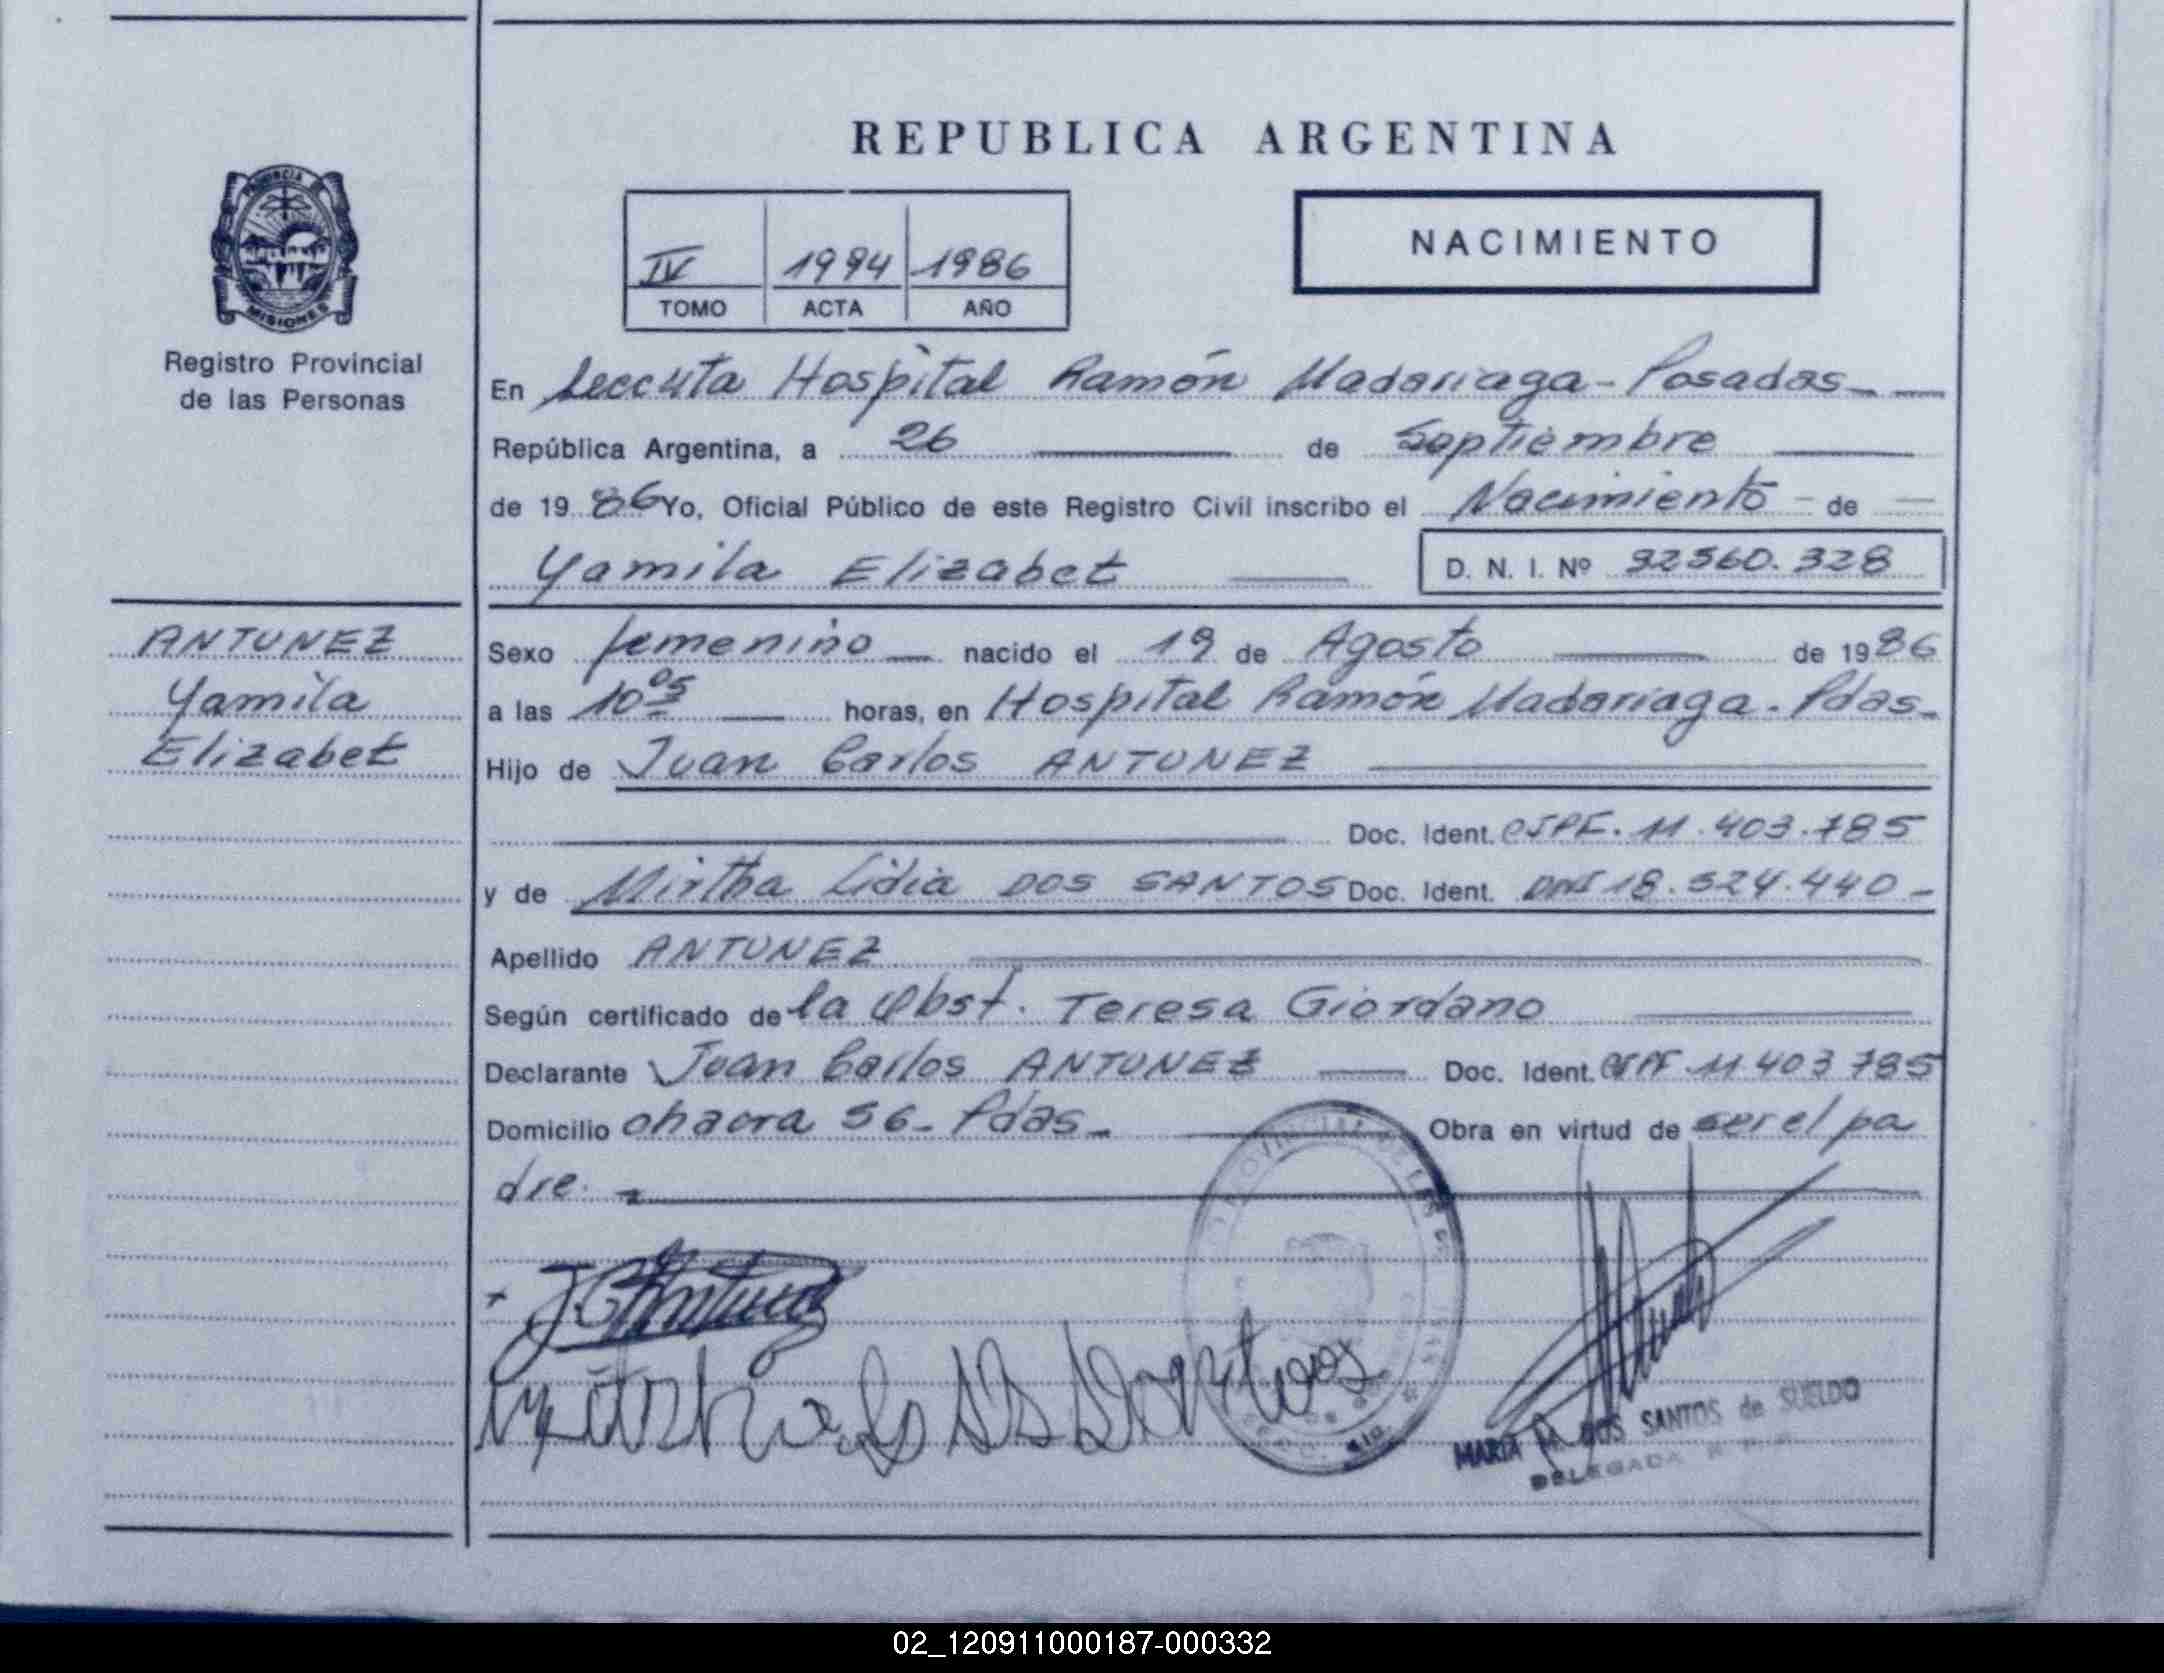 REPUBLICA ARGENTINA
PROVINCIA DE
MISIONES
Registro Provincial
de las Personas
IV 1994 1986
TOMO ACTA AÑO
NACIMIENTO
En Seccuta Hospital Ramón Madariaga - Posadas
República Argentina, a 26 de Septiembre
de 1986 Yo, Oficial Público de este Registro Civil inscribo el Nacimiento - de
Yamila Elizabet D. N. I. Nº 32560.328
ANTUNEZ
Yamila
Elizabet
Sexo femenino nacido el 19 de Agosto de 1986
a las 10 05 horas, en Hospital Ramón Madariaga - Pdas.
Hijo de Juan Carlos ANTUNEZ
Doc. Ident. 11.403.785
y de Mirtha Lidia DOS SANTOS Doc. Ident. DNI 18.524.440 -
Apellido ANTUNEZ
Según certificado de la Obst. Teresa Giordano
Declarante Juan Carlos ANTUNEZ Doc. Ident. 11 403 785
Domicilio chacra 56 - Pdas - Obra en virtud de ser el pa
dre. -
MARIA M. DOS SANTOS de SUELDO
DELEGADA
02_120911000187-000332